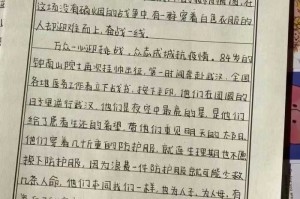 这场没有硝烟的战争中,有一群穿着白色衣服的
人却迎难而上,奋战一线。
万众一心迎挑战,众志成城抗疫情,84岁的
钟南山院士再次挂帅出征,第一时间奔赴武汉,全国
各地医务工作者立下战书,按下手印,他们在团圆的
日子里逆行武汉,他们是夜空中最亮的星,是他们
给了患者生还的希望,带他们重见明天的太阳。
他们穿着几斤重的防护服,就连生理期也不愿
换下防护服,因为浪费一件防护服就可能少救
几条人命,他们本同我们一样,也为人子,为人母,有